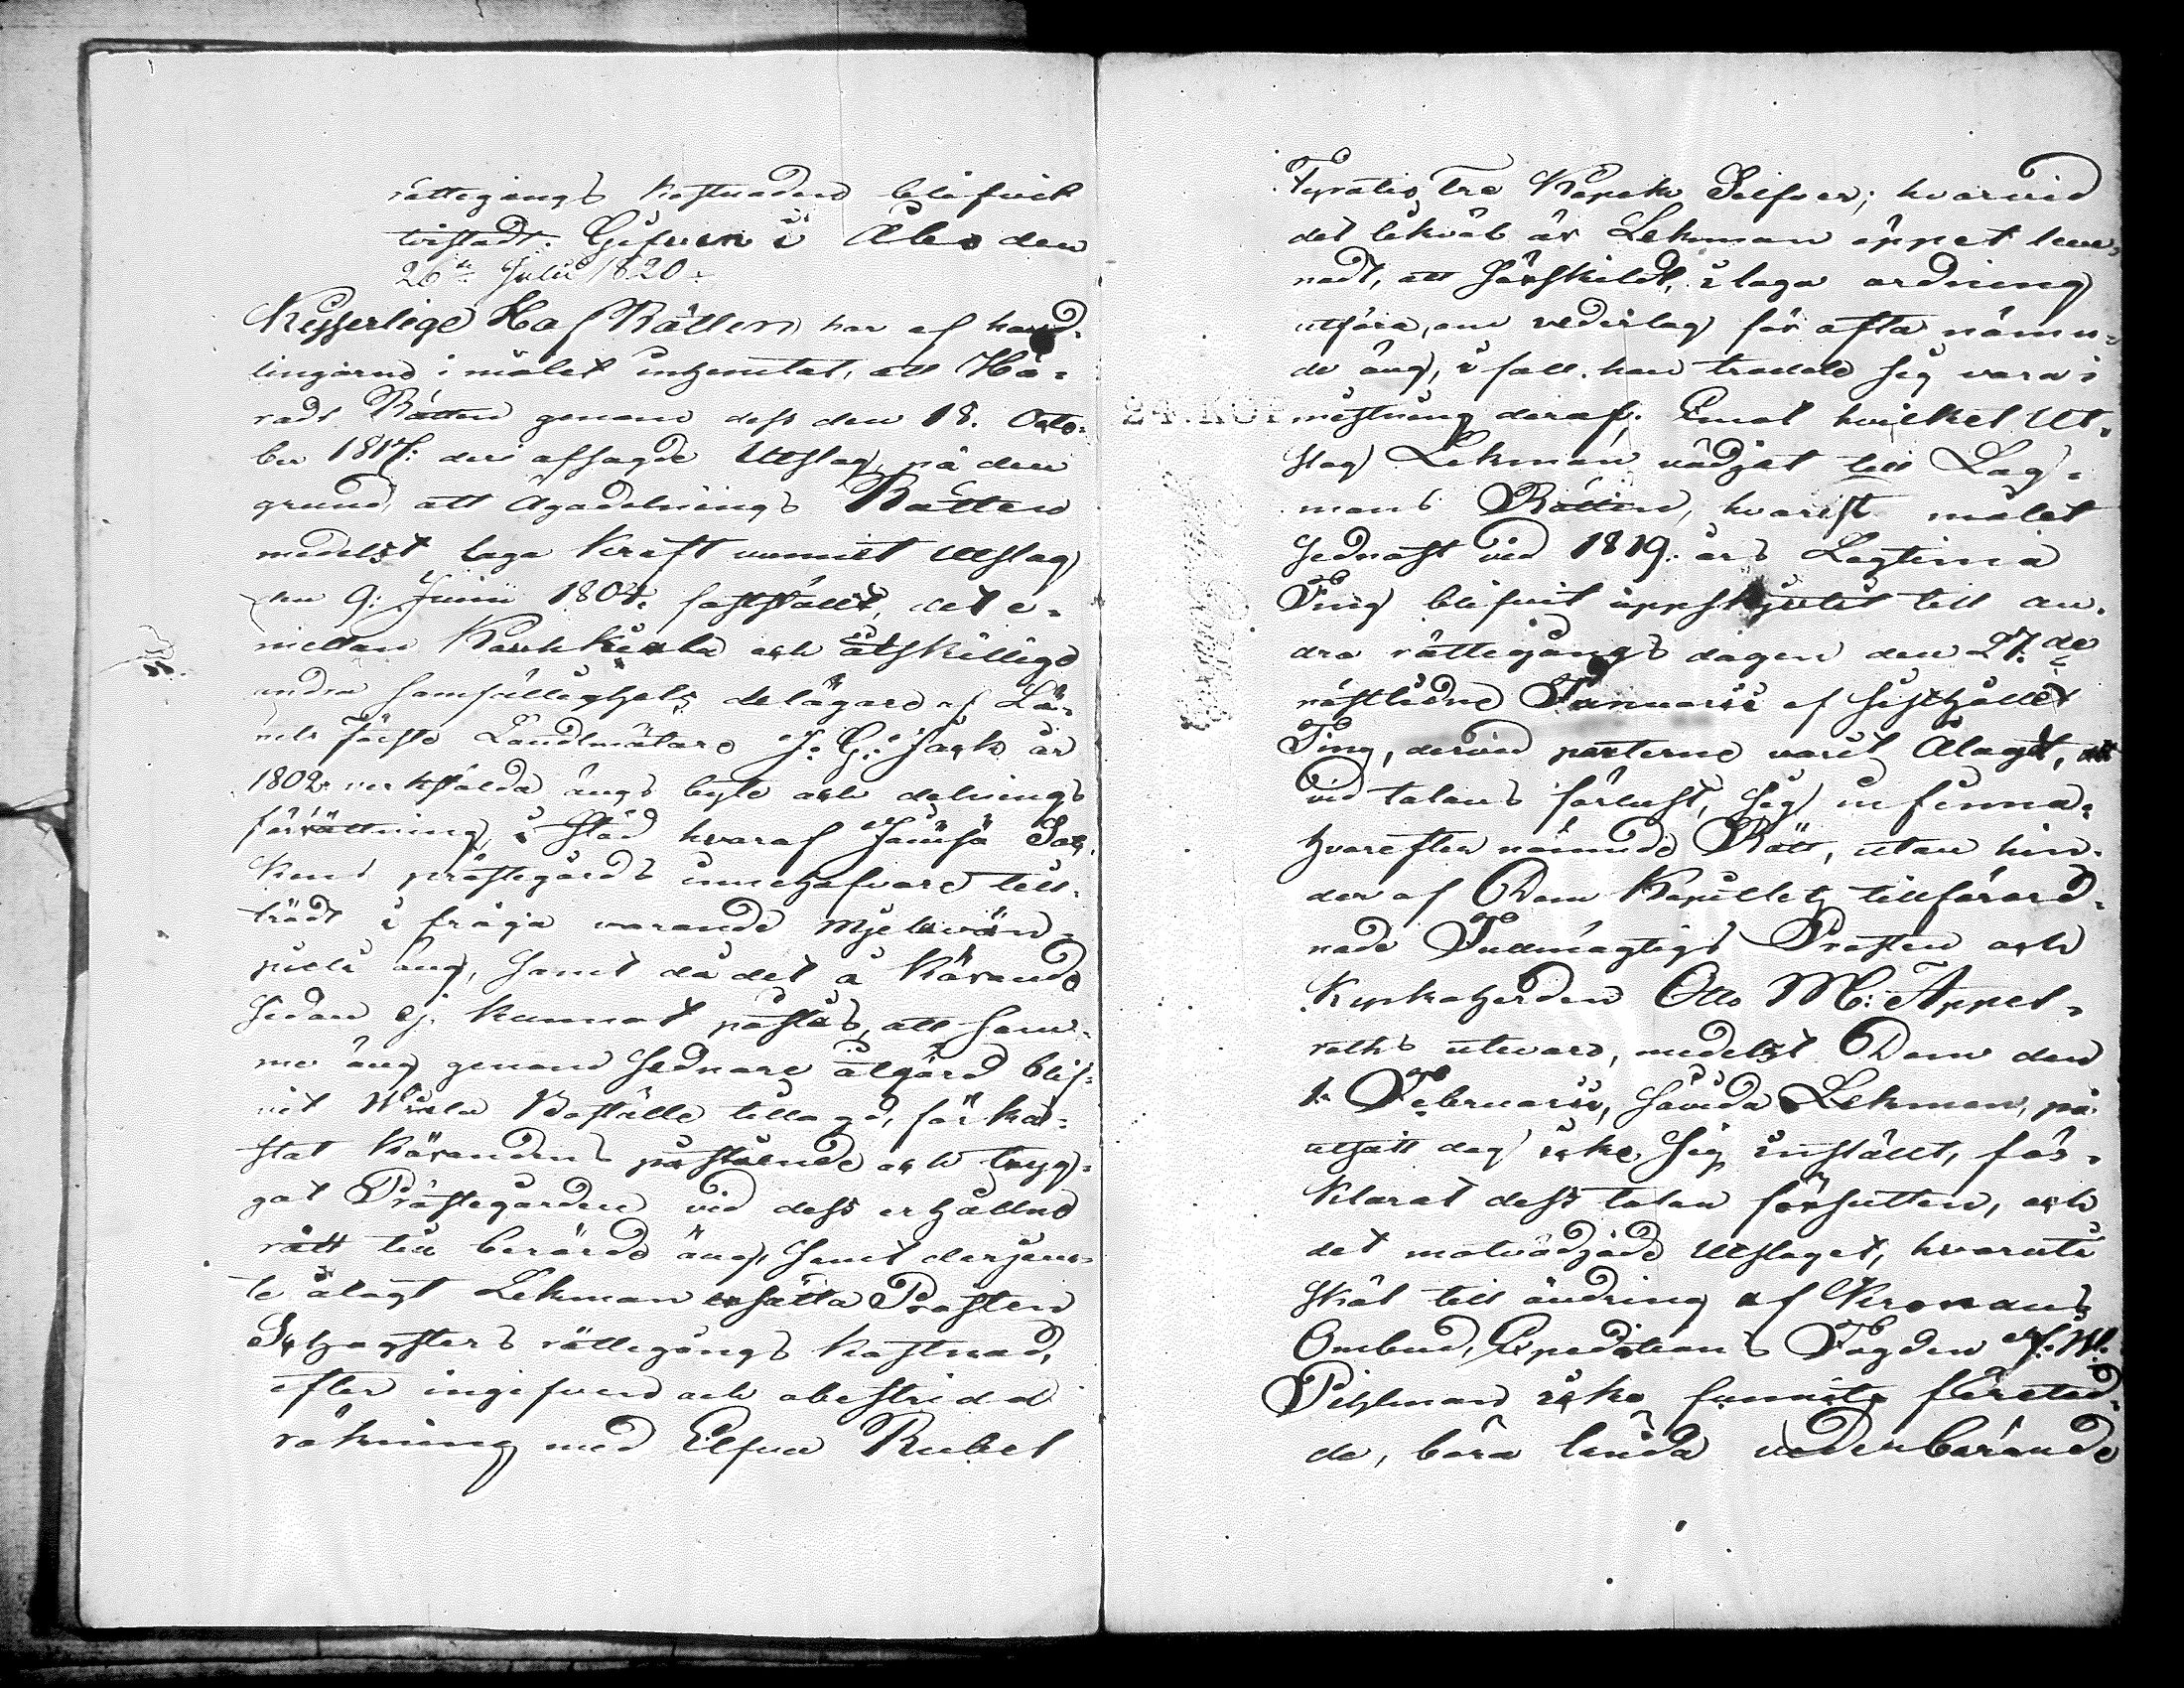 rättegångs kostnaden blifvit
tvistadt. Gifven i Åbo den
26te Julii 1820.
Kejserlige Hof Rätten har af hand-
lingarne i målet inhemtat, att Hä-
rads Rätten genom dess den 18. Octo-
ber 1817. deri afsagde Utslag, på den
grund, att Ägodelnings Rätten
medelst laga kraft vunnet Utslag
den 9: Junii 1804. fastställt, det e-
mellan och åtskillige
andra samfällighets delägare af Lä-
nets Förste Landtmätare J. G. Jack år
1802. verkstälda ängs byte och delnings
förrättning, i stöd hvaraf Jämsä Sok-
kens prästegårds innehafvare till-
trädt i fråga varande
äng, samt då det å Kärande
sidan ej kunnat påstås, att sam-
me äng genom sednare åtgärd blif-
vit Boställe tillagd, för ka-
stat Kärandens påstående och tryg-
gat Prästegården vid dess erhållne
rätt till berörde äng, samt derjem-
te ålagt Lehman ersätta Prosten
rättegångs kostnad,
efter ingifven och obestridd
räkning med Elfva Rubel
Fyratio tre Kopek Silfver; hvarvid
det likväl är Lehman öppet lem-
nadt, att särskildt, i laga ordning
utföra, om vederlag för ofta nämn-
de äng, i fall han trodde sig vara i
mistning deraf. Emot hvilket Ut-
slag Lehman vädjat till Lag-
mans Rätten, hvarest målet
sednast vid 1819. års Lagtima
Ting blifvit uppskjutit till an-
dra rättegångs dagen den 27.de
nästledne Januarii af sisthållet
Ting, dervid parterne varit ålagt, att
vid talans förlust, sig infinna;
hvarefter nämnde Rätt, utan hin-
der af Dom Kapitlets tillförord-
nade Fullmägtigs Prosten och
Kyrkoherden Otto M: Appel-
roths utevaro, medelst Dom den
1. Februarii, såvida Lehman, på
utsatt dag icke sig inställt, för-
klarat dess talan försutten, och
det motvädjade Utslaget, hvaruti
skäl till ändring af Kronans
Ombud, Expeditions Fogden
Pihlman icke funnits företed-
de, böra lända vederbörande